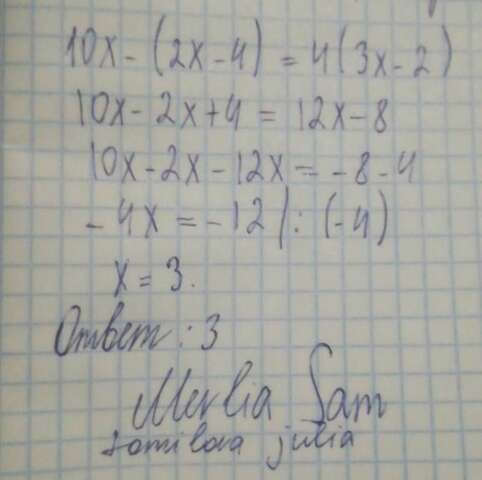 10x - (2x - 4) = 4(3x - 2)
10x - 2x + 4 = 12x - 8
10x - 2x - 12x = -8 - 4
-4x = -12 |: (-4)
x = 3.
Ответ: 3
Merlia Sam
Somilova julia